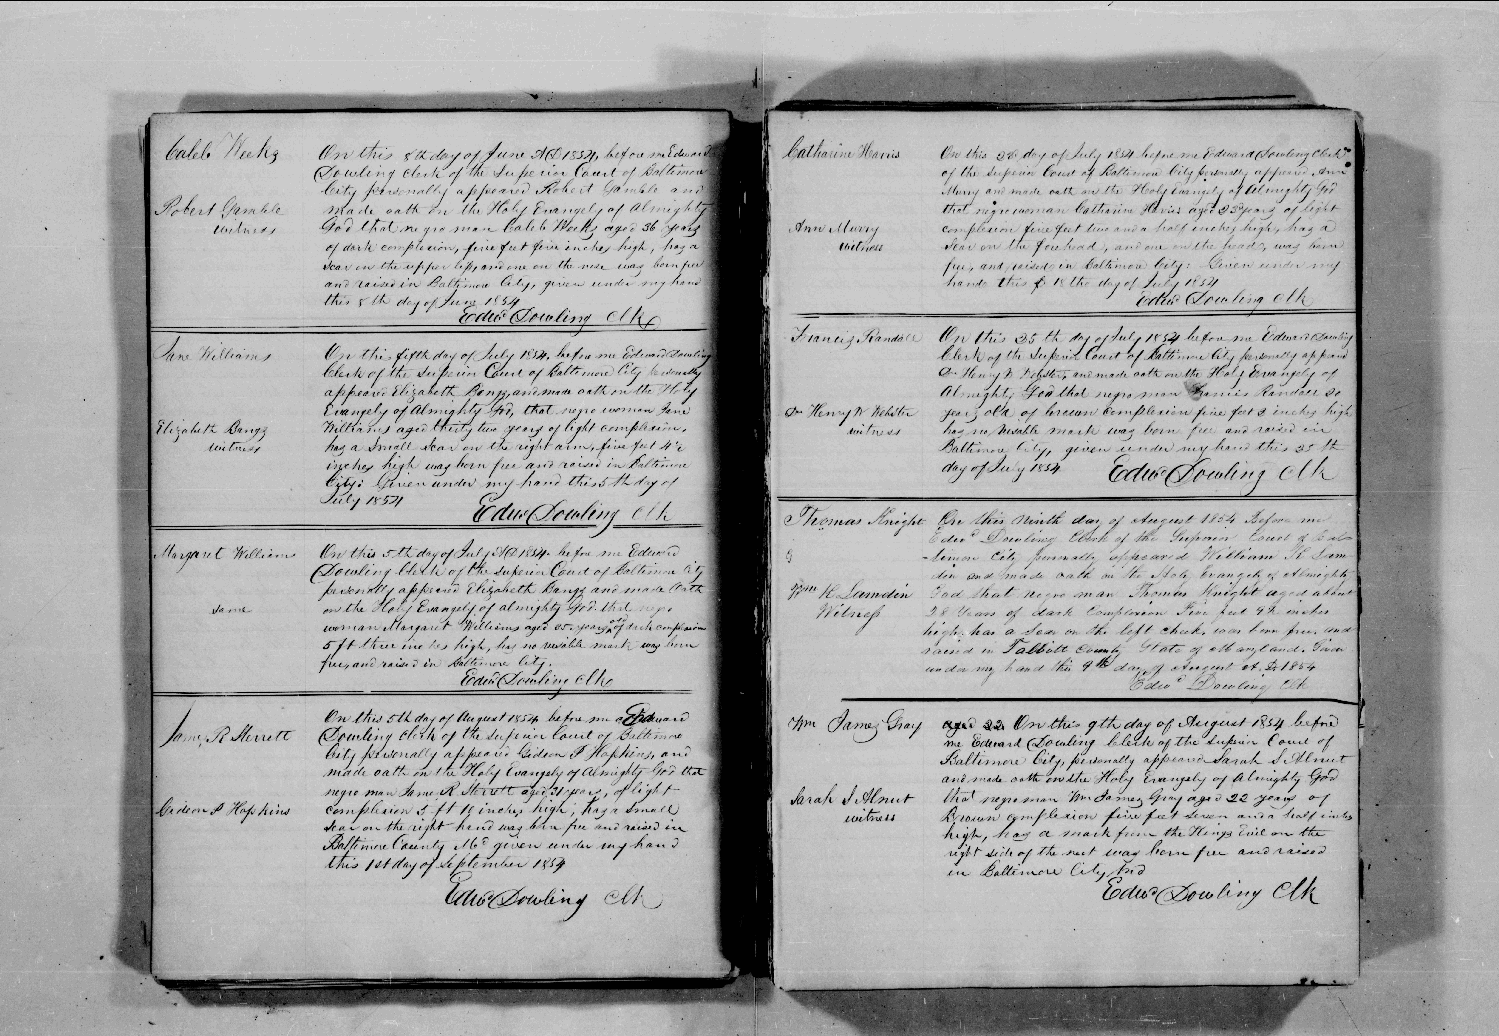 Caleb Weeks
Robert Gamble
witness
On this 8th day of June AD 1854, before me Edward
Dowling Clerk of the Superior Court of Baltimore
City personally appeared Robert Gamble and
made oath on the Holy Evangely of Almighty
God that negro man Caleb Weeks aged 36 years
of dark complexion, five feet five inches high, has a
scar on the upper lip, and one on the nose was born free
and raised in Baltimore City, given under my hand
this 8th day of June 1854
Edwd Dowling Clk
Jane Williams
Elizabeth Bangs
witness
On this fifth day of July 1854, before me Edward Dowling
Clerk of the Superior Court of Baltimore City personally
appeared Elizabeth Bangs, and made oath on the Holy
Evangely of Almighty God, that negro woman Jane
Williams aged thirty two years of light complexion,
has a small scar on the right arm, five feet 4½
inches high was born free and raised in Baltimore
City: Given under my hand this 5th day of
July 1854
Edwd Dowling Clk
Margaret Williams
same
On this 5th day of July AD 1854, before me Edward
Dowling Clerk of the Superior Court of Baltimore City
personally appeared Elizabeth Bangs and made oath
on the Holy Evangely of almighty God that negro
woman Margaret Williams aged years of complexion
5 ft three inches high, has no visable mark was born
free, and raised in Baltimore City.
Edwd Dowling Clk
James R Sterrett
Gideon P Hopkins
On this 5th day of August 1854 before me Edward
Dowling Clerk of the Superior Court of Baltimore
City personally appeared Gideon P Hopkins, and
made oath on the Holy Evangely of Almighty God that
negro man James R Sterrett aged 21 years, of light
complexion 5 ft inches high, has a small
scar on the right hand was born free and raised in
Baltimore County Md given under my hand
this 1st day of September 1854
Edwd Dowling Clk
Catharine Harris
Ann Murry
witness
On this day of July 1854 before me Edward Dowling Clerk
of the Superior Court of Baltimore City personally appeared Ann
Murry and made oath on the Holy Evangely of Almighty God
that negro woman Catharine Harris aged 23 years of light
complexion five feet two and a half inches high, has a
scar on the forehead, and one on the head, was born
free, and raised in Baltimore City: Given under my
hand this 18 the day of July 1854
Edwd Dowling Clk
Francis Randall
Dr Henry W Webster
witness
On this 25th day of July 1854 before me Edward Dowling
Clerk of the Superior Court of Baltimore City personally appeared
Dr Henry W Webster, and made oath on the Holy Evangely of
Almighty God that negro man Francis Randall 30
years old of brown complexion five feet 3 inches high
has no visable mark was born free and raised in
Baltimore City, given under my hand this 25th
day of July 1854 Edwd Dowling Clk
Thomas Knight
Wm H Lamdin
Witness
On this Ninth day of August 1854 Before me
Edwd Dowling Clerk of the Superior Court of Bal-
-timore City personally appeared William H Lam-
din and made oath on the Holy Evangely of Almighty
God that negro man Thomas Knight aged about
28 Years of dark Complexion Five feet 4½ inches
high, has a Scar on the left cheek, was born free, and
raised in Talbott County State of Maryland. Given
under my hand this 9th day of August A.D. 1854
Edwd Dowling Clk
Wm James Gray
Sarah S Alnut
witness
aged 22 On this 9th day of August 1854 before
me Edward Dowling Clerk of the Superior Court of
Baltimore City, personally appeared Sarah S Alnut
and made oath on the Holy Evangely of Almighty God
that negro man Wm James Gray aged 22 years of
Brown complexion five feet seven and a half inches
high, has a mark from the Kings Evil on the
right side of the neck was born free and raised
in Baltimore City, Md
Edwd Dowling Clk